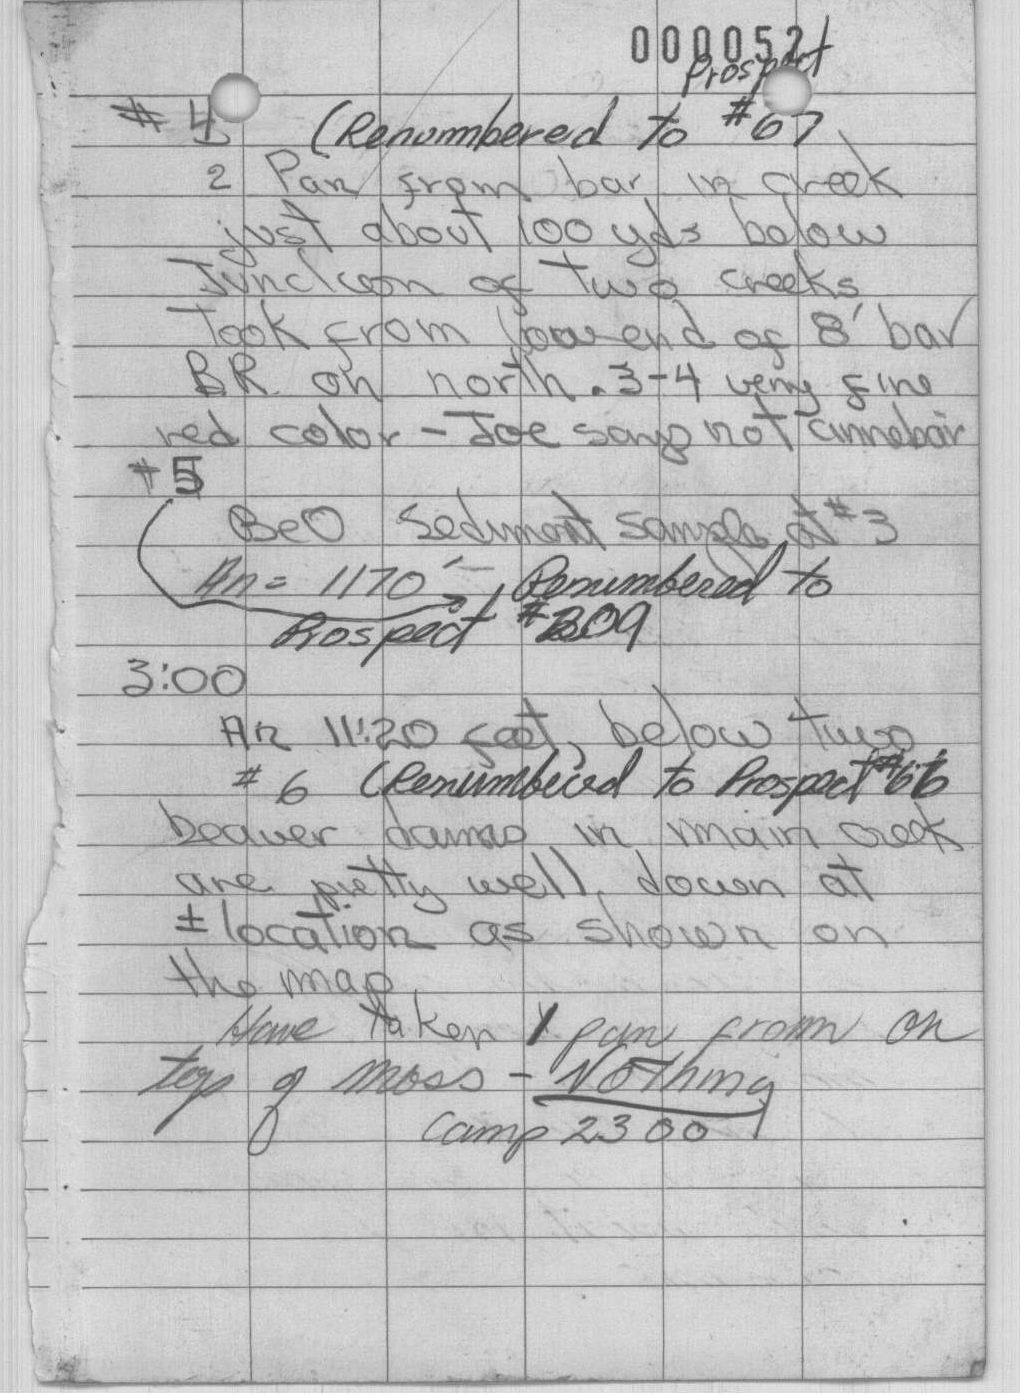 000052
Prospect
# 4 (Renumbered to #67
2 Pan from bar in creek
just about 100 yds below
Junction of two creeks
Took from low end of 8' bar
BR on north. 3-4 very fine
red color - Joe says not cinnebar
#5
BeO Sediment sample at #3
An = 1170' Renumbered to
Prospect #B09
3:00
An 11:20 feet, below two
# 6 (Renumbered to Prospect #66
beaver dams in main creek
are pretty well down at
± location as shown on
the map
Have taken 1 pan from on
top of moss - Nothing
Camp 2300